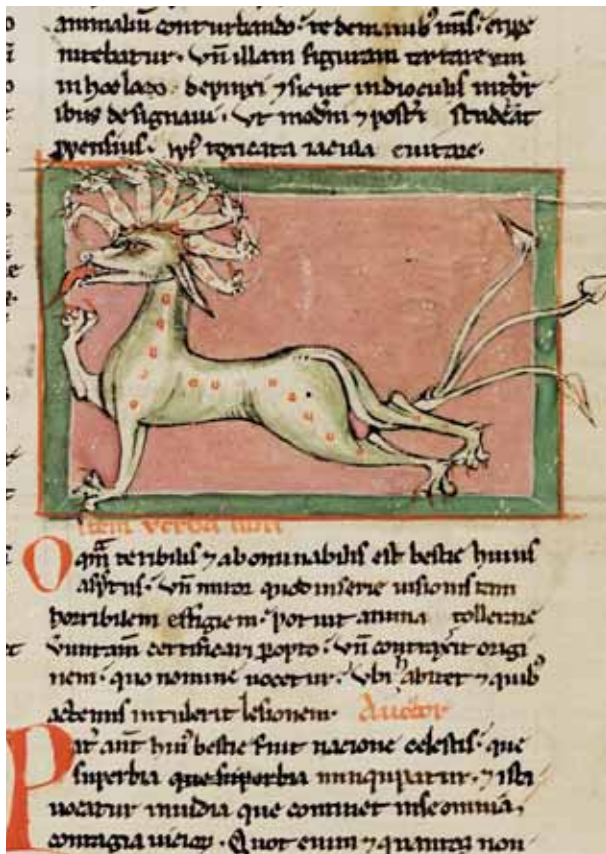 animaliũ conturbando te demanib᷒ eripe
nitebatur. Vñ illam figuram tartaream
in hoc loco depinxi ⁊ sicut in
ibus designaui. Vt ⁊ post̃i studeãt
toxicata iacula euitare.
Item verba
O qm̃ teribilis ⁊ abominabilis est bestie huius
asp̃tus. Vñ miror quod inserie uisionis tam
horribilem effigiem. potuit anima tollerare
certificari popto. Vñ contraxit origi
nem. quo nomine uocetur. Vbi habitet ⁊ quib᷒
actenus intulerit lesionem. Auctor
Pat̃ aũt hui᷒ bestie fuit nacione celestis. que
superbia que superbia nunqupatur. ⁊ ista
uocatur inuidia que continet inse omnia
contagia uicior̃. Quot enim ⁊ quantos non